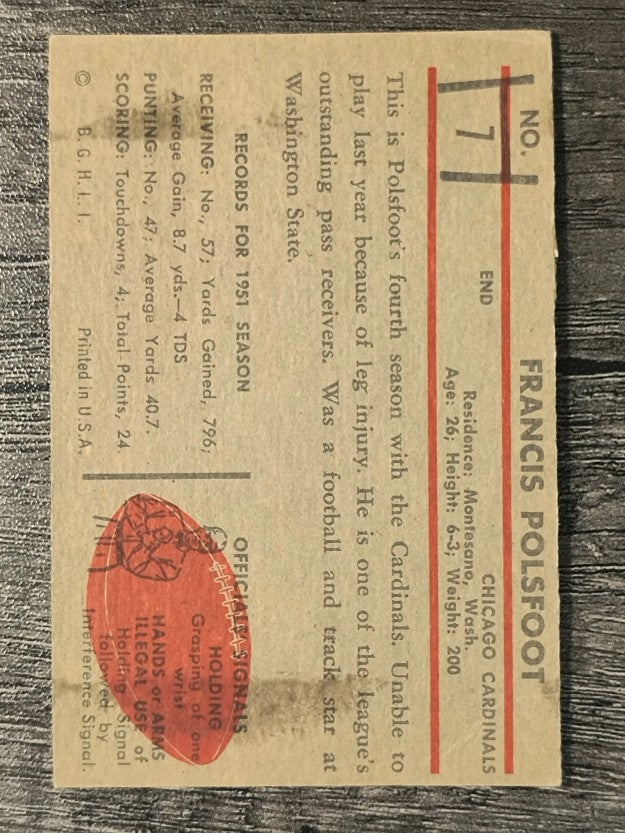 NO. 7
FRANCIS POLSFOOT
END
CHICAGO CARDINALS
Residence: Montesano, Wash.
Age: 26; Height: 6-3; Weight: 200
This is Polsfoot's fourth season with the Cardinals. Unable to
play last year because of leg injury. He is one of the league's
outstanding pass receivers. Was a football and track star at
Washington State.
RECORDS FOR 1951 SEASON
RECEIVING: No., 57; Yards Gained, 796;
Average Gain, 8.7 yds.—4 TDS
PUNTING: No., 47; Average Yards 40.7.
SCORING: Touchdowns, 4; Total Points, 24
© B. G. H. L. I.
Printed in U.S.A.
OFFICIAL SIGNALS
HOLDING
Grasping of one
wrist
HANDS or ARMS
ILLEGAL USE of
Holding Signal
followed by
Interference Signal.